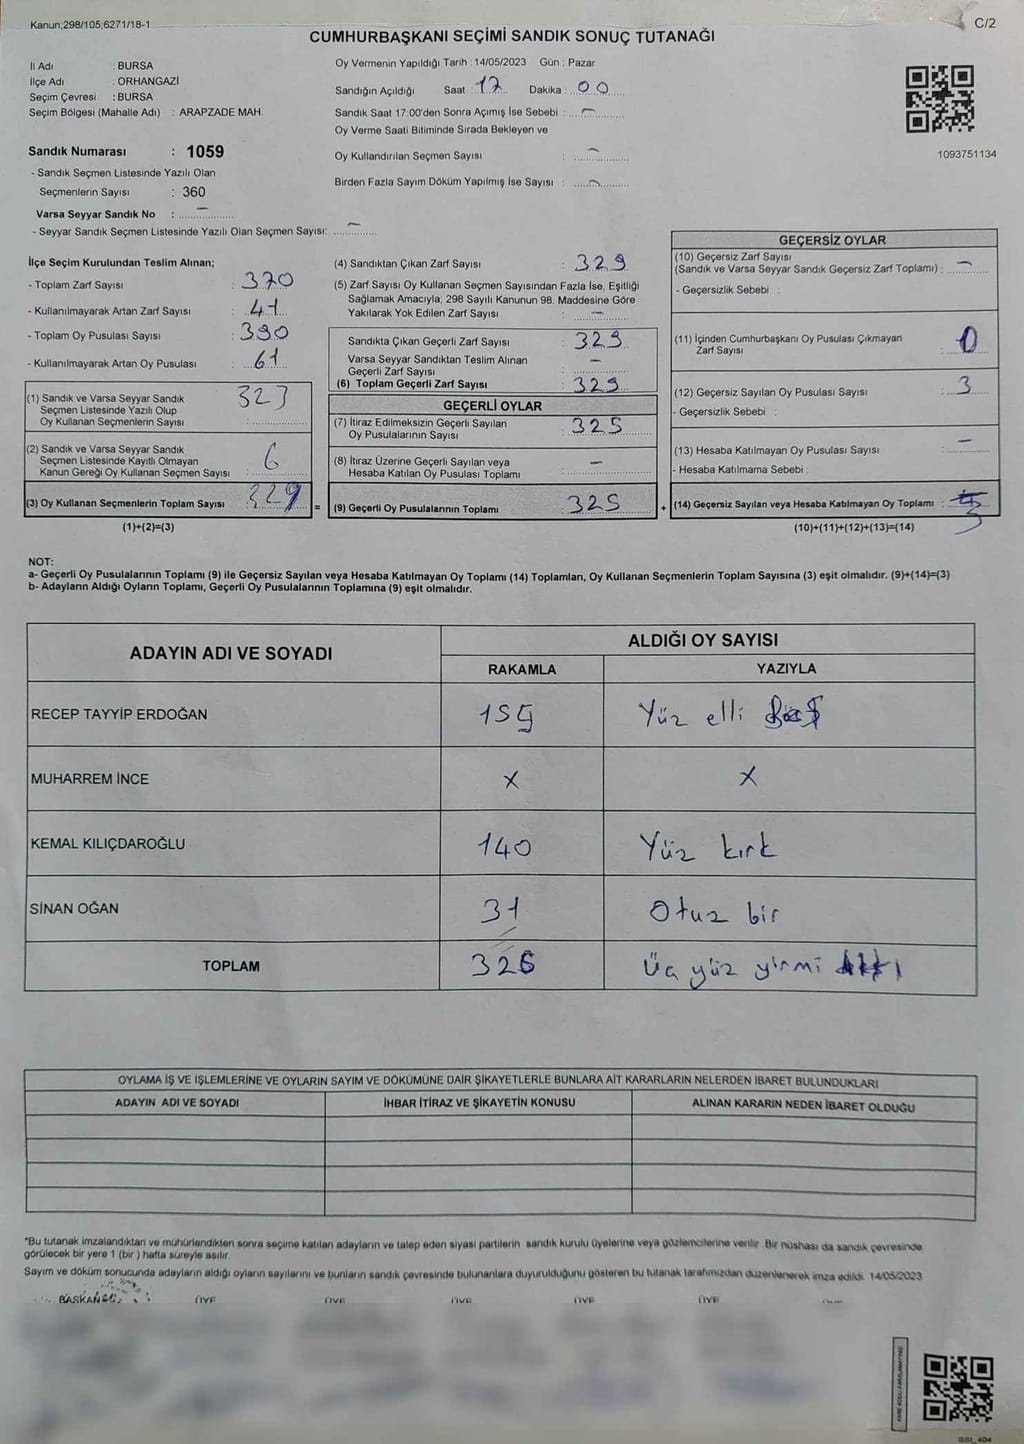 Kanun;298/105;6271/18-1
C/2
CUMHURBAŞKANI SEÇİMİ SANDIK SONUÇ TUTANAĞI
İl Adı : BURSA
İlçe Adı : ORHANGAZİ
Seçim Çevresi : BURSA
Seçim Bölgesi (Mahalle Adı) : ARAPZADE MAH.
Sandık Numarası : 1059
- Sandık Seçmen Listesinde Yazılı Olan
Seçmenlerin Sayısı : 360
Varsa Seyyar Sandık No : –
- Seyyar Sandık Seçmen Listesinde Yazılı Olan Seçmen Sayısı: –
Oy Vermenin Yapıldığı Tarih : 14/05/2023 Gün : Pazar
Sandığın Açıldığı Saat : 17 Dakika : 00
Sandık Saat 17:00'den Sonra Açımış İse Sebebi : –
Oy Verme Saati Bitiminde Sırada Bekleyen ve
Oy Kullandırılan Seçmen Sayısı : –
Birden Fazla Sayım Döküm Yapılmış İse Sayısı : –
1093751134
İlçe Seçim Kurulundan Teslim Alınan;
- Toplam Zarf Sayısı : 370
- Kullanılmayarak Artan Zarf Sayısı : 41
- Toplam Oy Pusulası Sayısı : 390
- Kullanılmayarak Artan Oy Pusulası : 61
(1) Sandık ve Varsa Seyyar Sandık
Seçmen Listesinde Yazılı Olup
Oy Kullanan Seçmenlerin Sayısı : 323
(2) Sandık ve Varsa Seyyar Sandık
Seçmen Listesinde Kayıtlı Olmayan
Kanun Gereği Oy Kullanan Seçmen Sayısı : 6
(3) Oy Kullanan Seçmenlerin Toplam Sayısı : 329 =
(1)+(2)=(3)
(4) Sandıktan Çıkan Zarf Sayısı : 329
(5) Zarf Sayısı Oy Kullanan Seçmen Sayısından Fazla İse, Eşitliği
Sağlamak Amacıyla; 298 Sayılı Kanunun 98. Maddesine Göre
Yakılarak Yok Edilen Zarf Sayısı : –
Sandıkta Çıkan Geçerli Zarf Sayısı : 329
Varsa Seyyar Sandıktan Teslim Alınan
Geçerli Zarf Sayısı : –
(6) Toplam Geçerli Zarf Sayısı : 329
GEÇERLİ OYLAR
(7) İtiraz Edilmeksizin Geçerli Sayılan
Oy Pusulalarının Sayısı : 325
(8) İtiraz Üzerine Geçerli Sayılan veya
Hesaba Katılan Oy Pusulası Toplamı : –
(9) Geçerli Oy Pusulalarının Toplamı : 325 +
GEÇERSİZ OYLAR
(10) Geçersiz Zarf Sayısı
(Sandık ve Varsa Seyyar Sandık Geçersiz Zarf Toplamı) : –
- Geçersizlik Sebebi :
(11) İçinden Cumhurbaşkanı Oy Pusulası Çıkmayan
Zarf Sayısı : 0
(12) Geçersiz Sayılan Oy Pusulası Sayısı : 3
- Geçersizlik Sebebi :
(13) Hesaba Katılmayan Oy Pusulası Sayısı : –
- Hesaba Katılmama Sebebi :
(14) Geçersiz Sayılan veya Hesaba Katılmayan Oy Toplamı : 3
(10)+(11)+(12)+(13)=(14)
NOT:
a- Geçerli Oy Pusulalarının Toplamı (9) ile Geçersiz Sayılan veya Hesaba Katılmayan Oy Toplamı (14) Toplamları, Oy Kullanan Seçmenlerin Toplam Sayısına (3) eşit olmalıdır. (9)+(14)=(3)
b- Adayların Aldığı Oyların Toplamı, Geçerli Oy Pusulalarının Toplamına (9) eşit olmalıdır.
ADAYIN ADI VE SOYADI ALDIĞI OY SAYISI
RAKAMLA YAZIYLA
RECEP TAYYİP ERDOĞAN 155 Yüz elli Beş
MUHARREM İNCE X X
KEMAL KILIÇDAROĞLU 140 Yüz kırk
SİNAN OĞAN 31 Otuz bir
TOPLAM 326 Üç yüz yirmi
OYLAMA İŞ VE İŞLEMLERİNE VE OYLARIN SAYIM VE DÖKÜMÜNE DAİR ŞİKAYETLERLE BUNLARA AİT KARARLARIN NELERDEN İBARET BULUNDUKLARI
ADAYIN ADI VE SOYADI İHBAR İTİRAZ VE ŞİKAYETİN KONUSU ALINAN KARARIN NEDEN İBARET OLDUĞU
*Bu tutanak imzalandıktan ve mühürlendikten sonra seçime katılan adayların ve talep eden siyasi partilerin sandık kurulu üyelerine veya gözlemcilerine verilir. Bir nüshası da sandık çevresinde
görülecek bir yere 1 (bir) hafta süreyle asılır.
Sayım ve döküm sonucunda adayların aldığı oyların sayılarını ve bunların sandık çevresinde bulunanlara duyurulduğunu gösteren bu tutanak tarafımızdan düzenlenerek imza edildi. 14/05/2023
BAŞKAN ÜYE ÜYE ÜYE ÜYE ÜYE